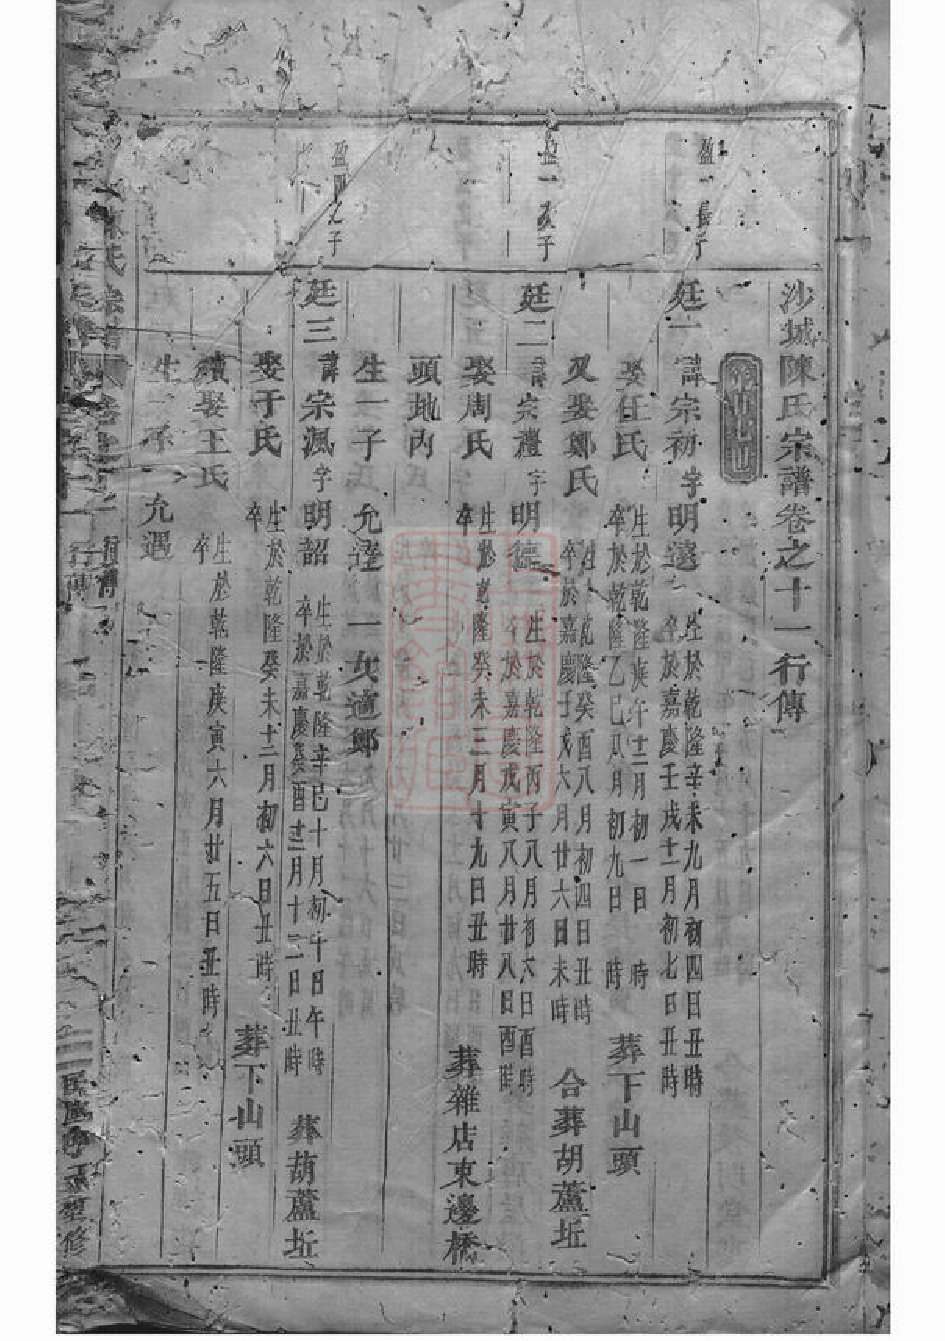 沙城陳氏宗譜卷之十一 行傳
盈一長子
廷一 諱宗初字明遠 生於乾隆辛未九月初四日丑時
卒於嘉慶壬戌十二月初七日丑時
娶任氏 生於乾隆庚午十二月初一日 時
卒於乾隆乙巳八月初九日 時 葬下山頭
又娶鄭氏 生於乾隆癸酉八月初四日丑時
卒於嘉慶壬戌六月廿六日未時 合葬胡蘆坵
盈一次子
廷二 諱宗禮字明 生於乾隆丙子八月初六日酉時
卒於嘉慶戊寅八月廿八日酉時
娶周氏 生於乾隆癸未三月十九日丑時
卒 葬雜店東邊橋
頭地內
生一子 允 一女適鄭
盈四之子
廷三 諱宗渢字明韶 生於乾隆辛巳十月初午日午時
卒於嘉慶癸酉十二月十二日丑時 葬葫蘆坵
娶于氏 生於乾隆癸未十二月初六日丑時
卒 葬下山頭
續娶王氏 生於乾隆庚寅六月廿五日丑時
卒
生一子 允遇
陳氏宗譜 卷之十一 行傳